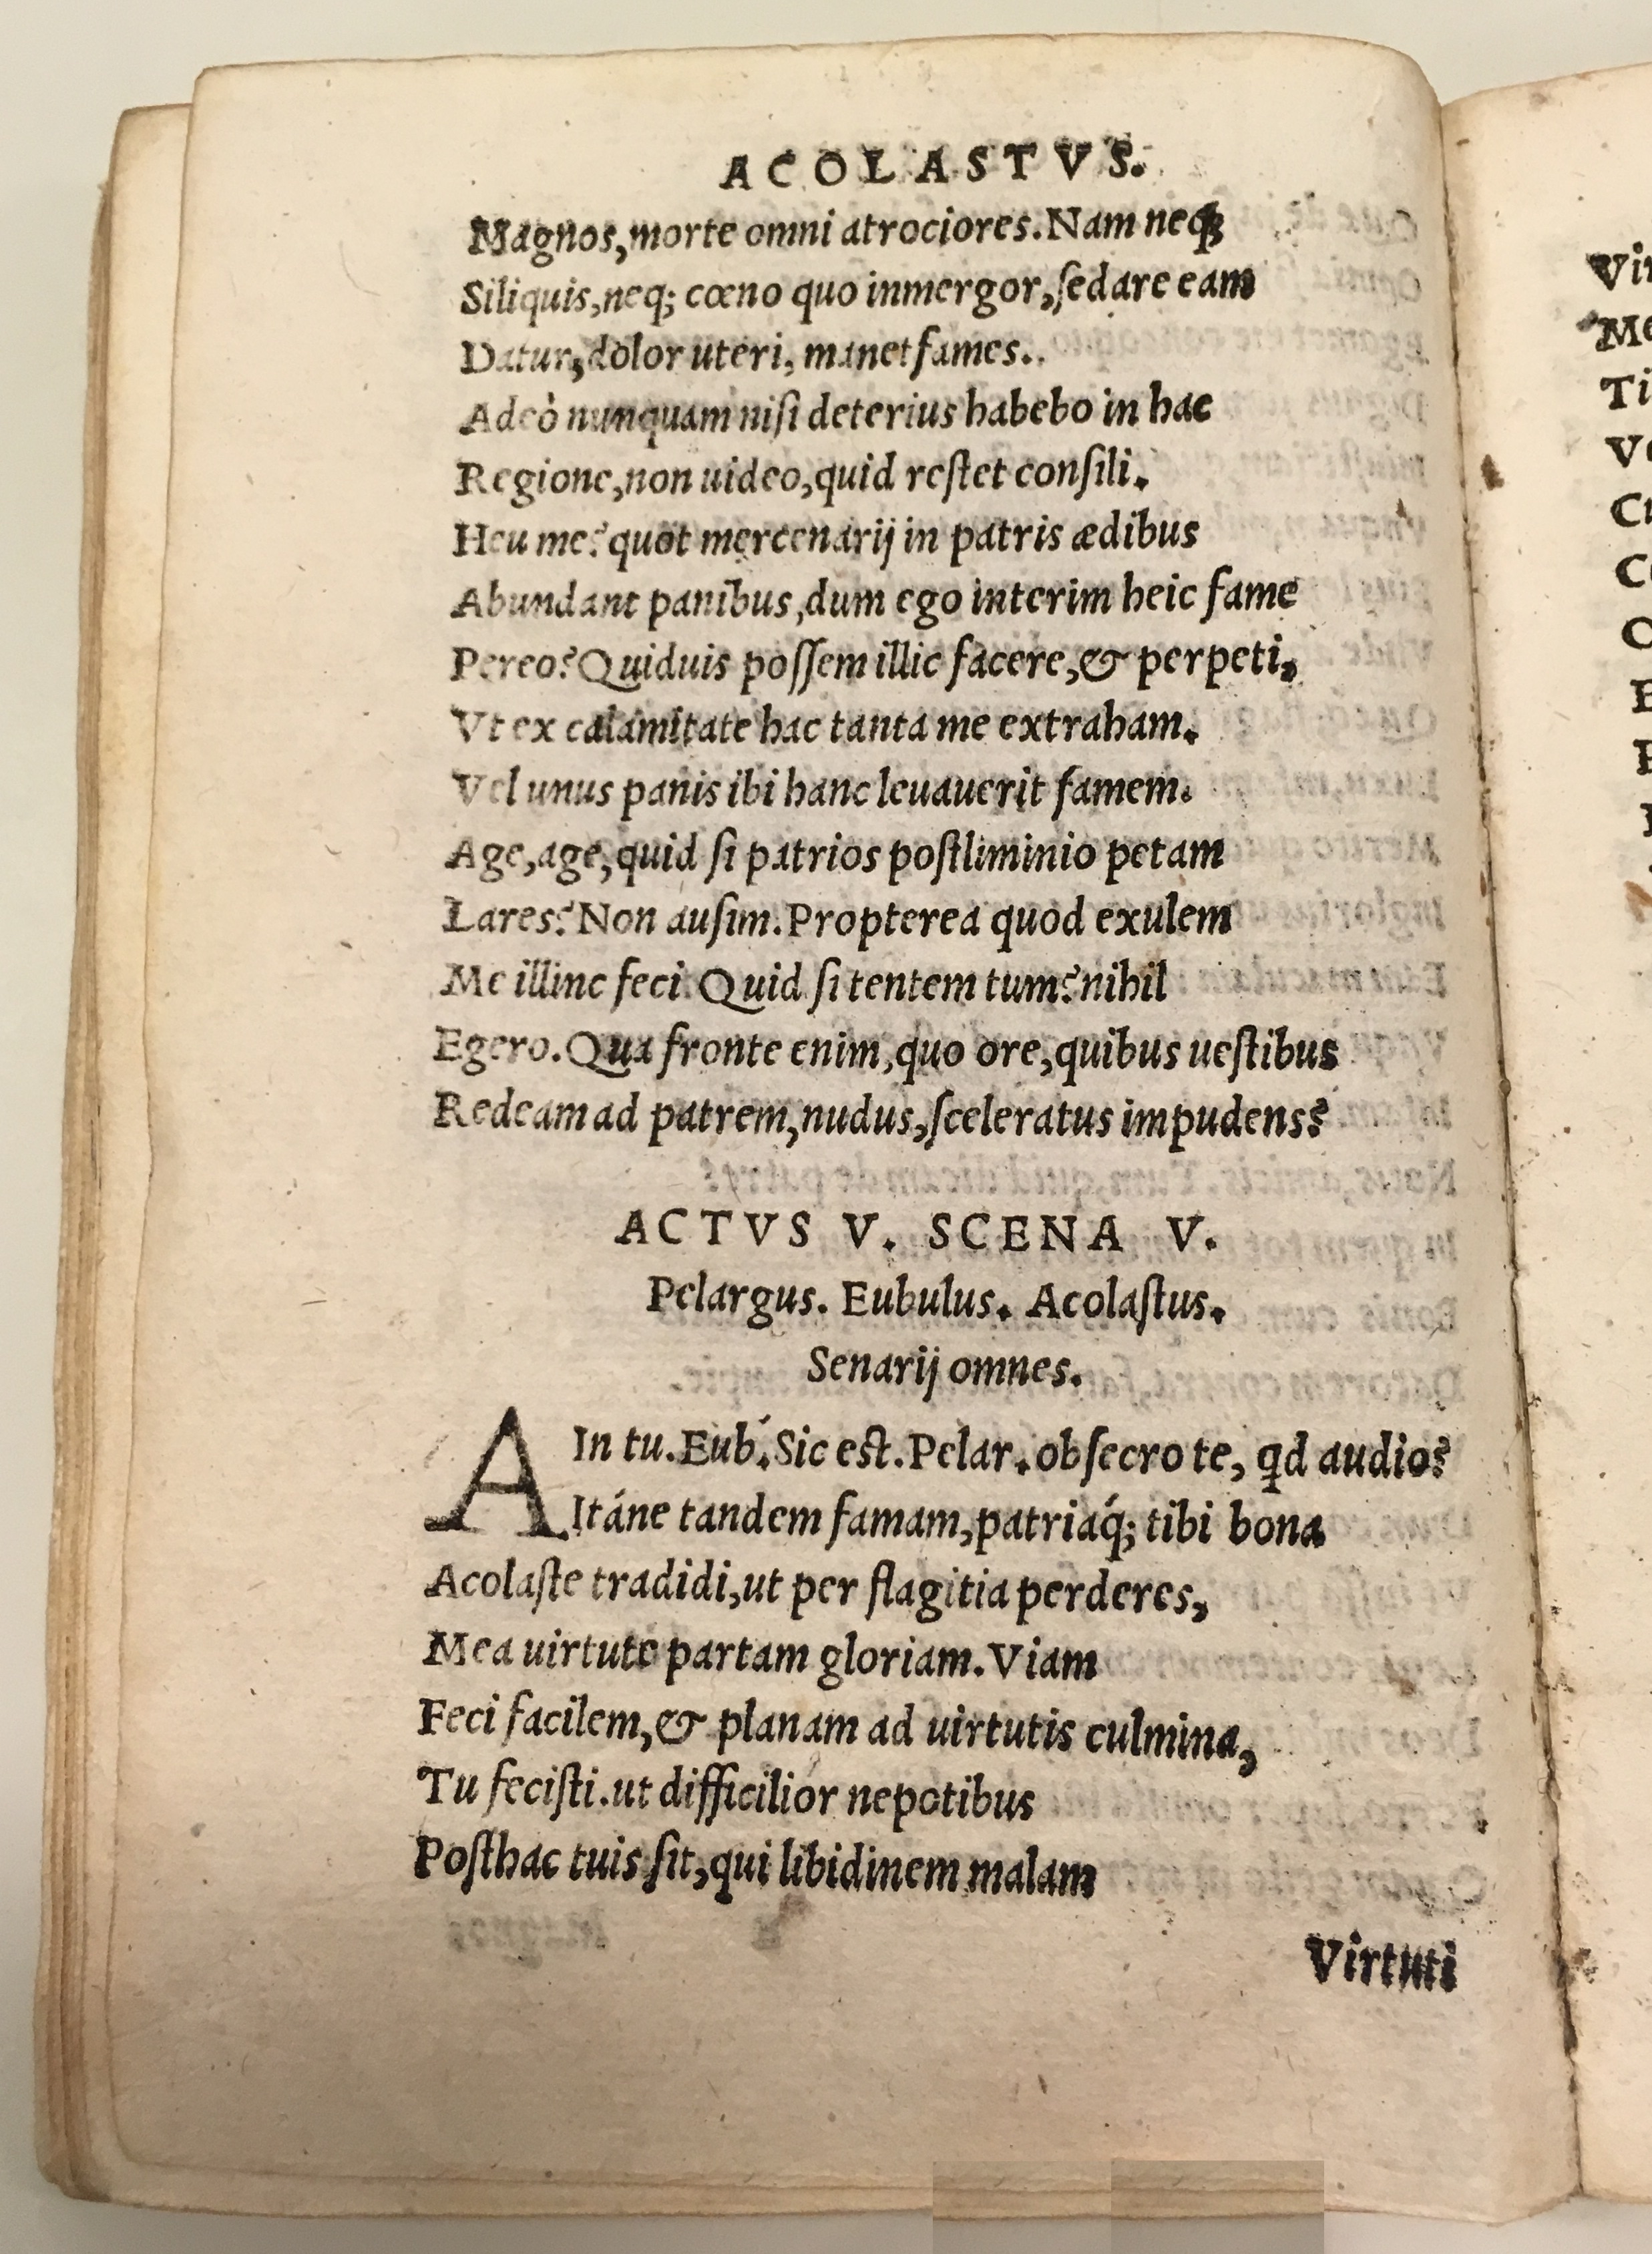 ACOLASTVS.
Magnos,morte omni atrociores.Nam neq;
Siliquis,neq; cœno quo inmergor,ſedare eam
Datur,dolor uteri, manet fames.
Adeò nunquam niſi deterius habebo in hac
Regione,non uideo,quid reſtet conſili.
Heu me?quot mercenarij in patris ædibus
Abundant panibus,dum ego interim heic fame
Pereo?Quiduis poſſem illic facere,& perpeti,
Vt ex calamitate hac tanta me extraham.
Vel unus panis ibi hanc leuauerit famem.
Age,age,quid ſi patrios poſtliminio petam
Lares?Non auſim.Propterea quod exulem
Me illinc feci.Quid ſi tentem tum?nihil
Egero.Qua fronte enim,quo ore,quibus ueſtibus
Redeam ad patrem,nudus,ſceleratus impudens?
ACTVS V. SCENA V.
Pelargus. Eubulus. Acolaſtus.
Senarij omnes.
AIn tu.Eub.Sic eſt.Pelar.obſecro te, qd audio?
Itáne tandem famam,patriaq́; tibi bona
Acolaſte tradidi,ut per flagitia perderes,
Mea uirtute partam gloriam.Viam
Feci facilem,& planam ad uirtutis culmina,
Tu feciſti.ut difficilior nepotibus
Poſthac tuis ſit,qui libidinem malam
Virtuti
Vi
Me
Ti